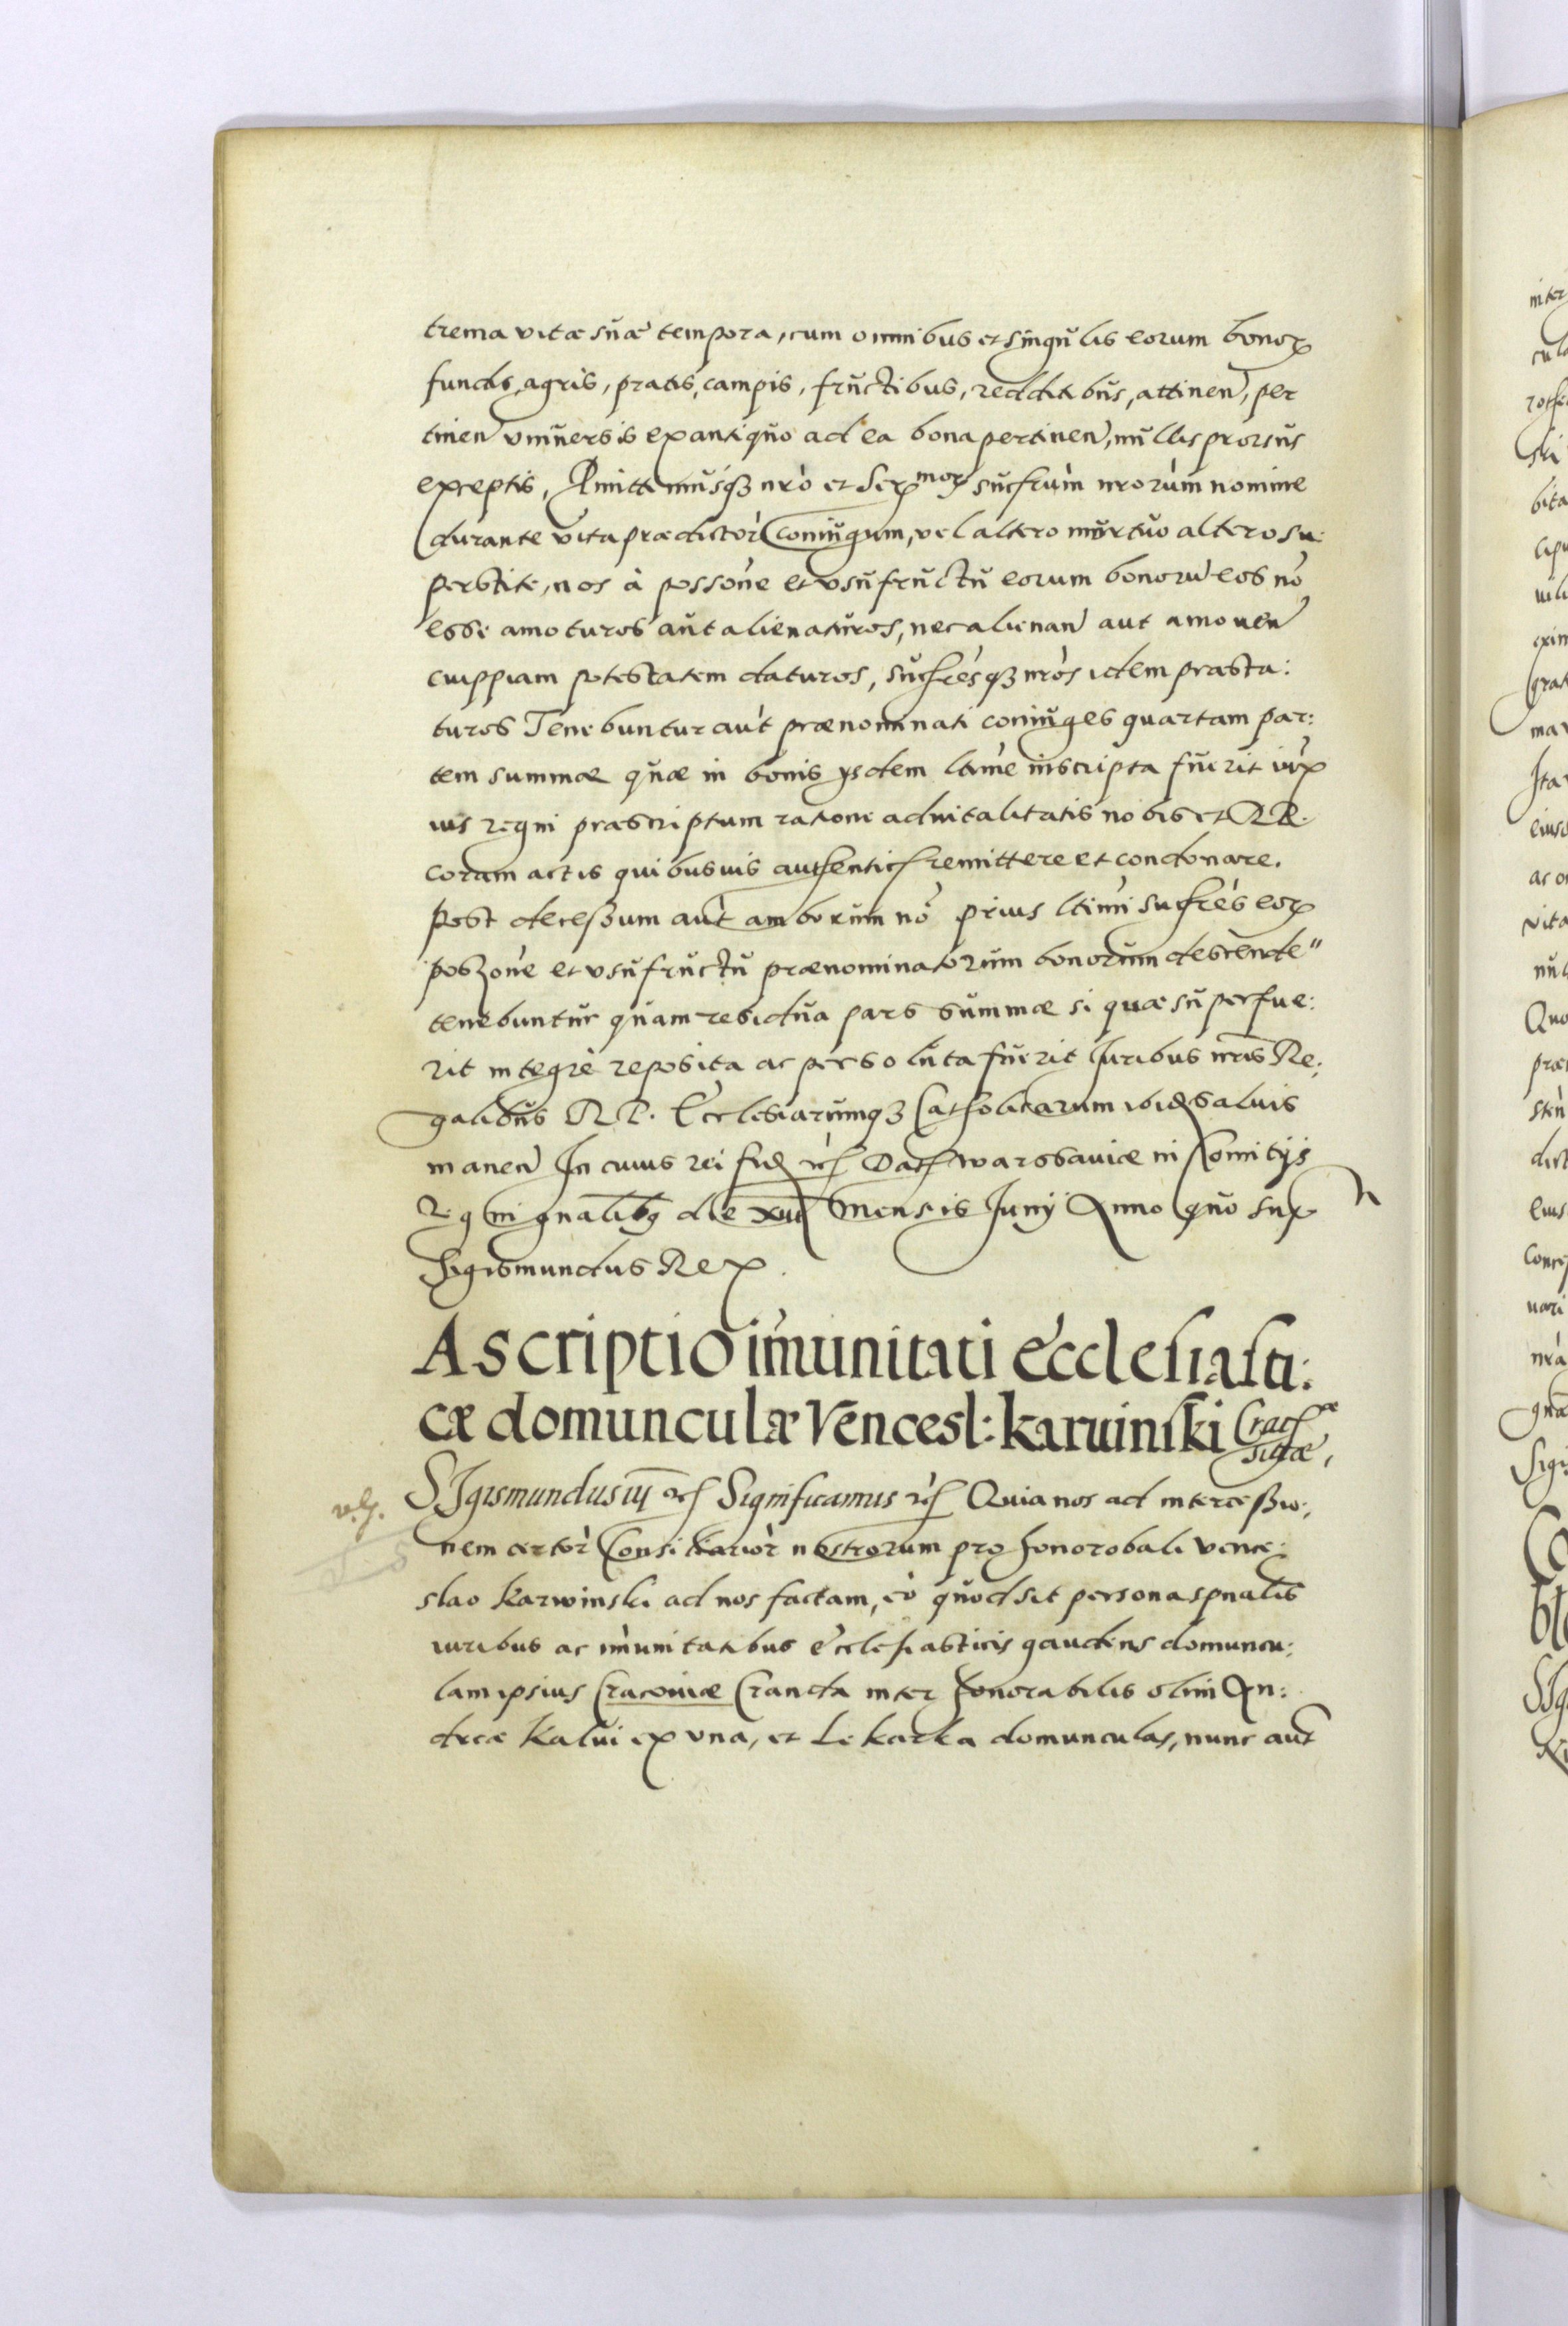 trema vitæ suæ tempora, cum omnibus et singulis eorum bonor
fundis, agris, pratis, campis, fructibus, redditibus, attinen, per
tinen vniuersis ex antiquo ad ea bona pertinen, nullis prorsus
exceptis, Pmittimusq3 nro et Ser mor sucrum nrorum nomine
durante vita prædictor Coniugum, vel altero mortuo altero su:
perstite, nos à possone et vsufructu eorum bonoru eos nō
esse amoturos aut alienaturos, nec alienan aut amouen
cuippiam potestatem daturos, sucresq3 nros idem præsta:
turos Tenebuntur aut prænominati coniuges quartam par:
tem summæ quæ in bonis ysdem ltime inscripta fuerit iux
ius regni præscriptum ratione aduitalitatis nobis et RP.
coram actis quibusuis authentich remittere et condonare.
Post decessum aut amborum nō prius ltimi sucres eor
poszone et vsufructu prænominatorum bonorum descende"
tenebuntur quam residua pars summæ si quæ superfue:
rit integrè reposita ac persoluta fuerit Juribus nris Re:
galibus RP. Ecclesiarumq3 Catholicarum ibid saluis
manen In cuius rei fid etc Dat Warssauiæ in Comitijs
Regni gnalibq die xiii Mensis Junij Anno quo sup
Sigismundus Rex.
Ascriptio imunitati ecclesiasti:
cæ domunculæ Vencesl: karuinski Crac æ
sitæ,
SIgismundus iij etc Significamus etc Quia nos ad intercessio:
nem certor Consiliarior nostrorum pro honorobali vence:
slao Karwinski ad nos factam, eò quod sit persona spnalis
iuribus ac imunitatibus ecclesiasticis gaudens domuncu:
lam ipsius Cracouiæ inter honorabilis olim An:
dreæ Kalui ex vna, et Lekarka domunculas, nunc aut